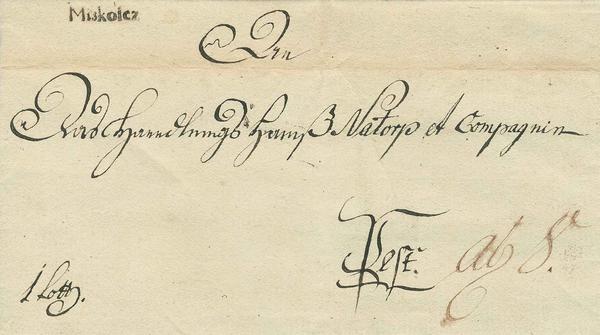 Miskolcz
An
Das Handlungs Hauß Natorp et Compagnie
Pest.
ab 8.
1 Loth.